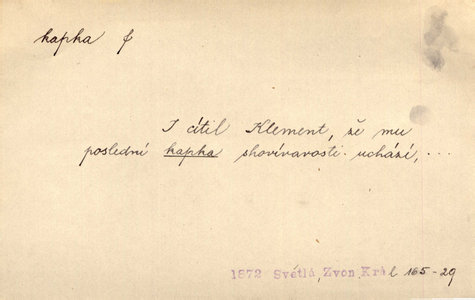 kapka f
I cítil Klement, že mu
poslední kapka shovívavosti uchází, ...
1872 Světlá, Zvon. Král 165-29